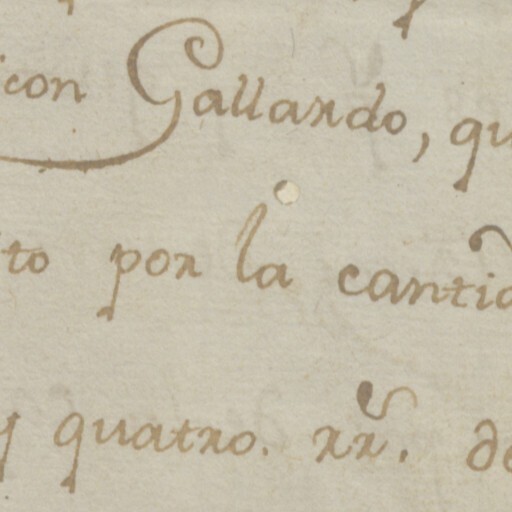 con Gallardo, qu
to por la cantid
y quatro. rr.ˢ de